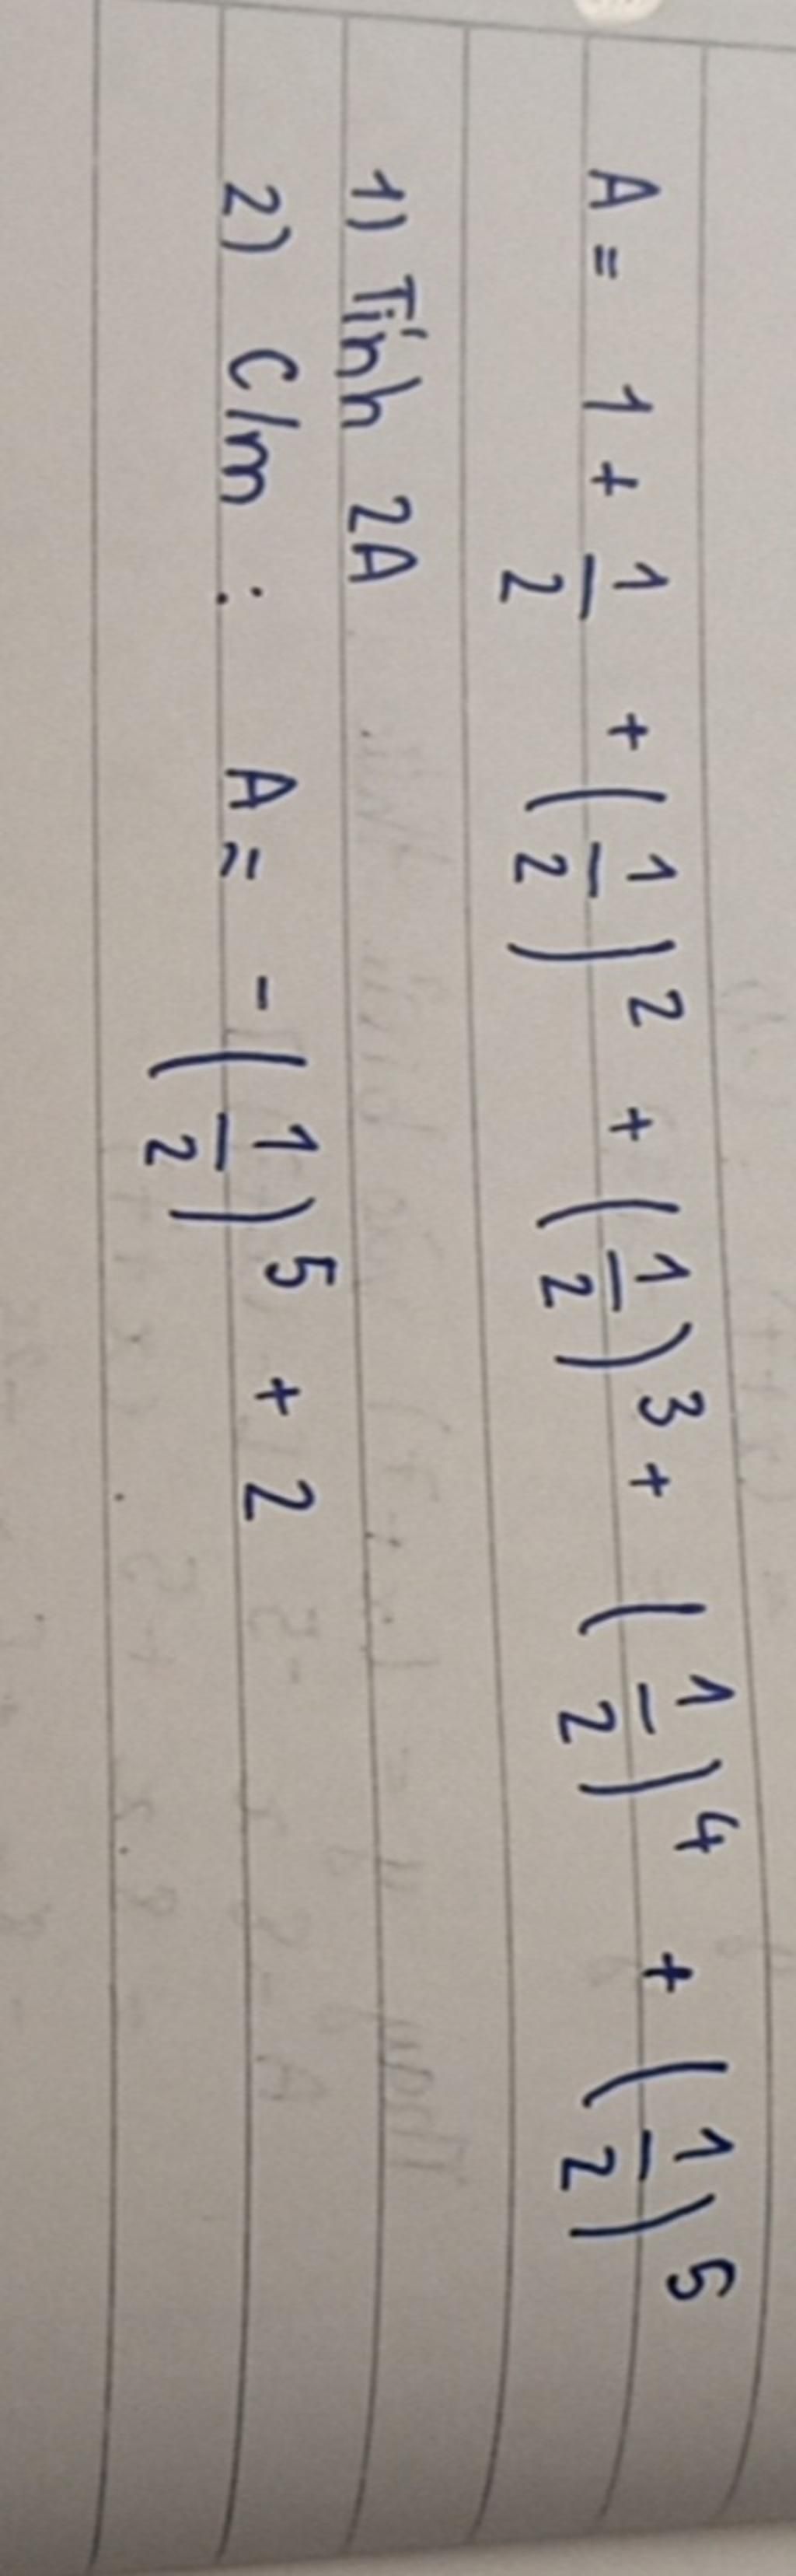 A = 1 + 1/2 + (1/2)^2 + (1/2)^3 + (1/2)^4 + (1/2)^5
1) Tính 2A
2) C/m : A = - (1/2)^5 + 2